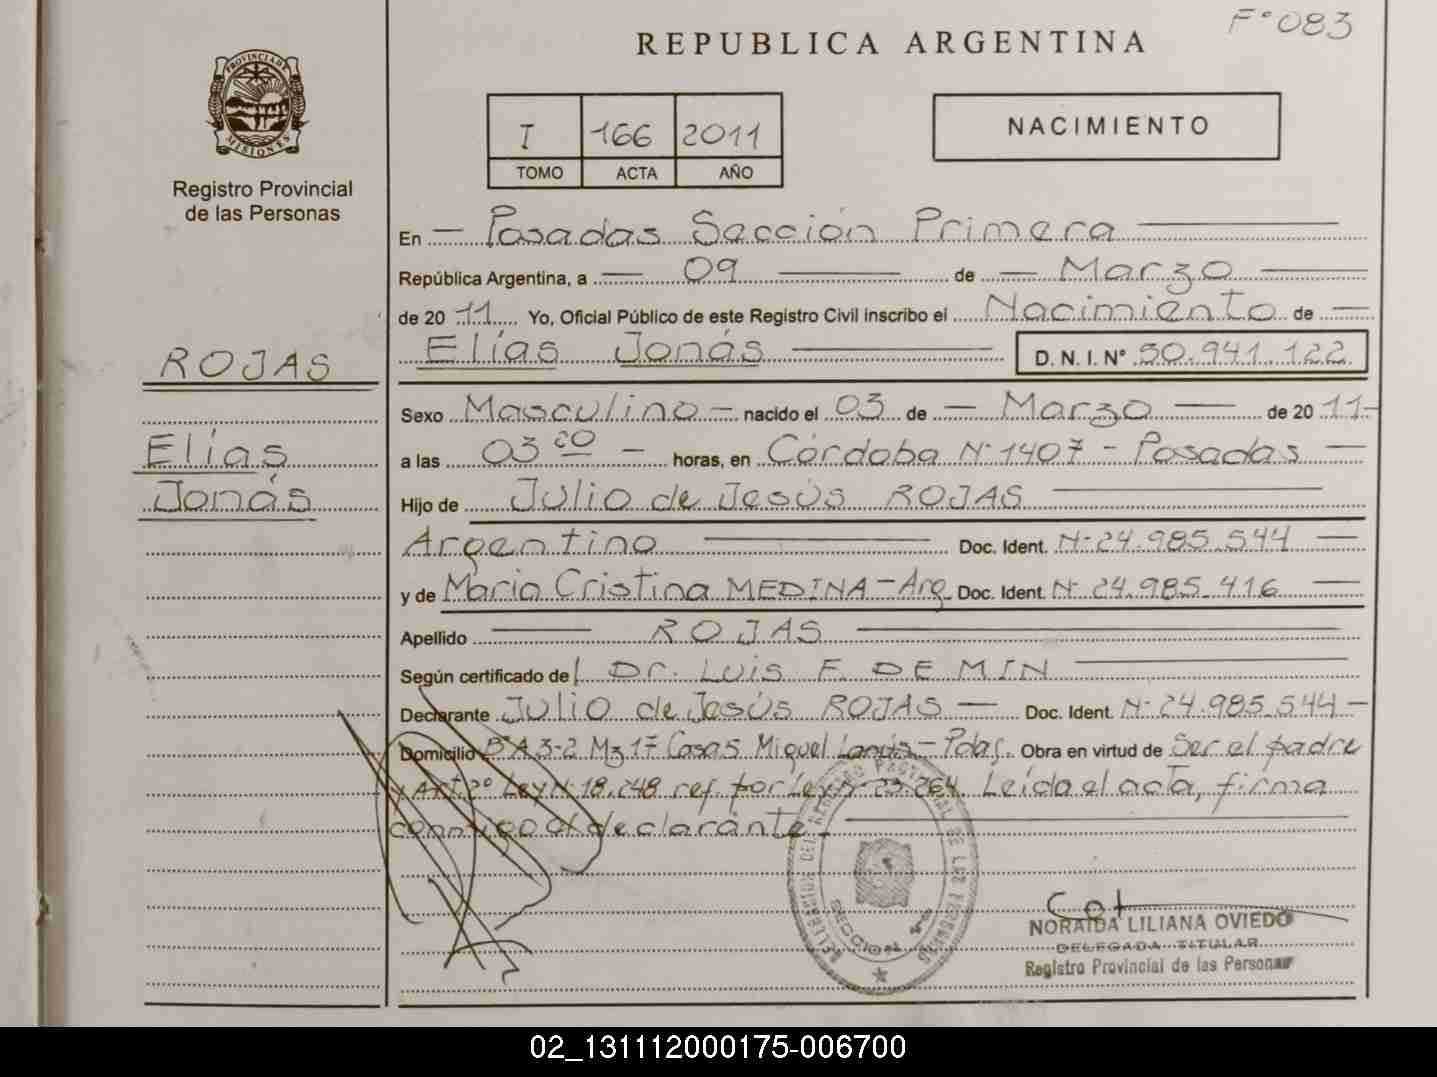 F° 083
REPUBLICA ARGENTINA
PROVINCIA DE
MISIONES
Registro Provincial
de las Personas
I 166 2011
TOMO ACTA AÑO
NACIMIENTO
En Posadas Sección Primera
República Argentina, a 09 de Marzo
de 2011 Yo, Oficial Público de este Registro Civil inscribo el Nacimiento de
Elías Jonás D. N. I. N° 50.941.122
ROJAS
Elías
Jonás
Sexo Masculino nacido el 03 de Marzo de 2011
a las 03 20 horas, en Córdoba N° 1407 - Posadas
Hijo de Julio de Jesús ROJAS
Argentino Doc. Ident. N° 24.985.544
y de Maria Cristina MEDINA - Arg Doc. Ident. N° 24.985.416
Apellido ROJAS
Según certificado del DR. LUIS F. DE MIN
Declarante Julio de Jesús ROJAS Doc. Ident. N° 24.985.544
Domicilio A 3-2 Mz 17 Casa 5 Miguel Lanús - Pdas. Obra en virtud de Ser el padre
y Art. 2° Ley N° 18.248 ref. por Ley N° 23.264 Leída el acta, firma
conmigo el declarante.
DELEGACION DEL REGISTRO PROVINCIAL DE LAS PERSONAS
SECCION 1ra
NORAIDA LILIANA OVIEDO
DELEGADA TITULAR
Registro Provincial de las Personas
02_131112000175-006700